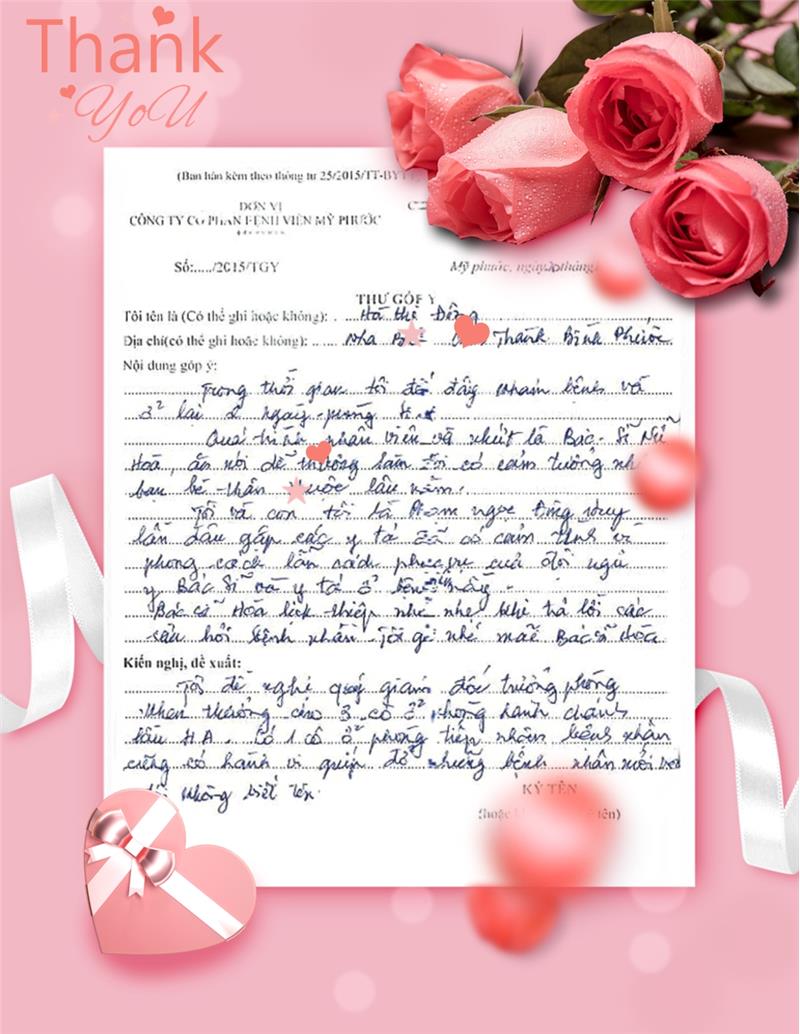 Thank
YoU
(Ban hân kèm theo thông tư 25/2015/TT-BYT
ĐƠN VỊ
CÔNG TY CỔ PHẦN BỆNH VIỆN MỸ PHƯỚC
Số:...../2015/TGY
Mỹ phước, ngày tháng
THƯ GÓP Ý
Tôi tên là (Có thể ghi hoặc không): Hà thị
Địa chỉ(có thể ghi hoặc không): Nha Thành Bình Phước
Nội dung góp ý:
Trong thời gian tôi đây khám bệnh và
ở lại 2 ngày
Quá trình nhân viên và nhứt là Bác Sĩ Nữ
Hoà, ăn nói dễ thương làm có cảm tưởng như
bạn bè thân thuộc lâu năm.
Tôi và con tôi là ngọc
lần đầu gặp các y tá đã có cảm tình vì
phong cách phục vụ của đội ngũ
y Bác sĩ và y tá ở
Bác sĩ Hoà lịch thiệp nhỏ nhẹ khi trả lời các
câu hỏi bệnh nhân. Tôi nhớ mãi Bác sĩ Hoà
Kiến nghị, đề xuất:
Tôi đề nghị quý giám đốc trưởng phòng
khen thưởng cho 3 cô ở phòng hành chánh
HA. Có 1 cô ở phòng tiếp nhân bệnh nhân
cũng có hành vi giúp đỡ những bệnh nhân mới
không biết tên
KÝ TÊN
(hoặc tên)